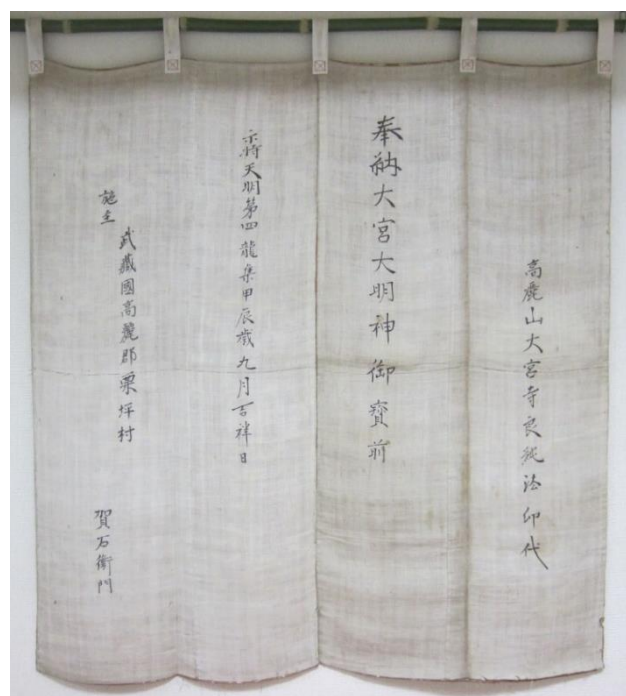 高麗山大宮寺良純法印代
奉納大宮大明神御寳前
示時天明第四龍集甲辰歳九月吉祥日
施主
武藏國高麗郡栗坪村
賀右衛門